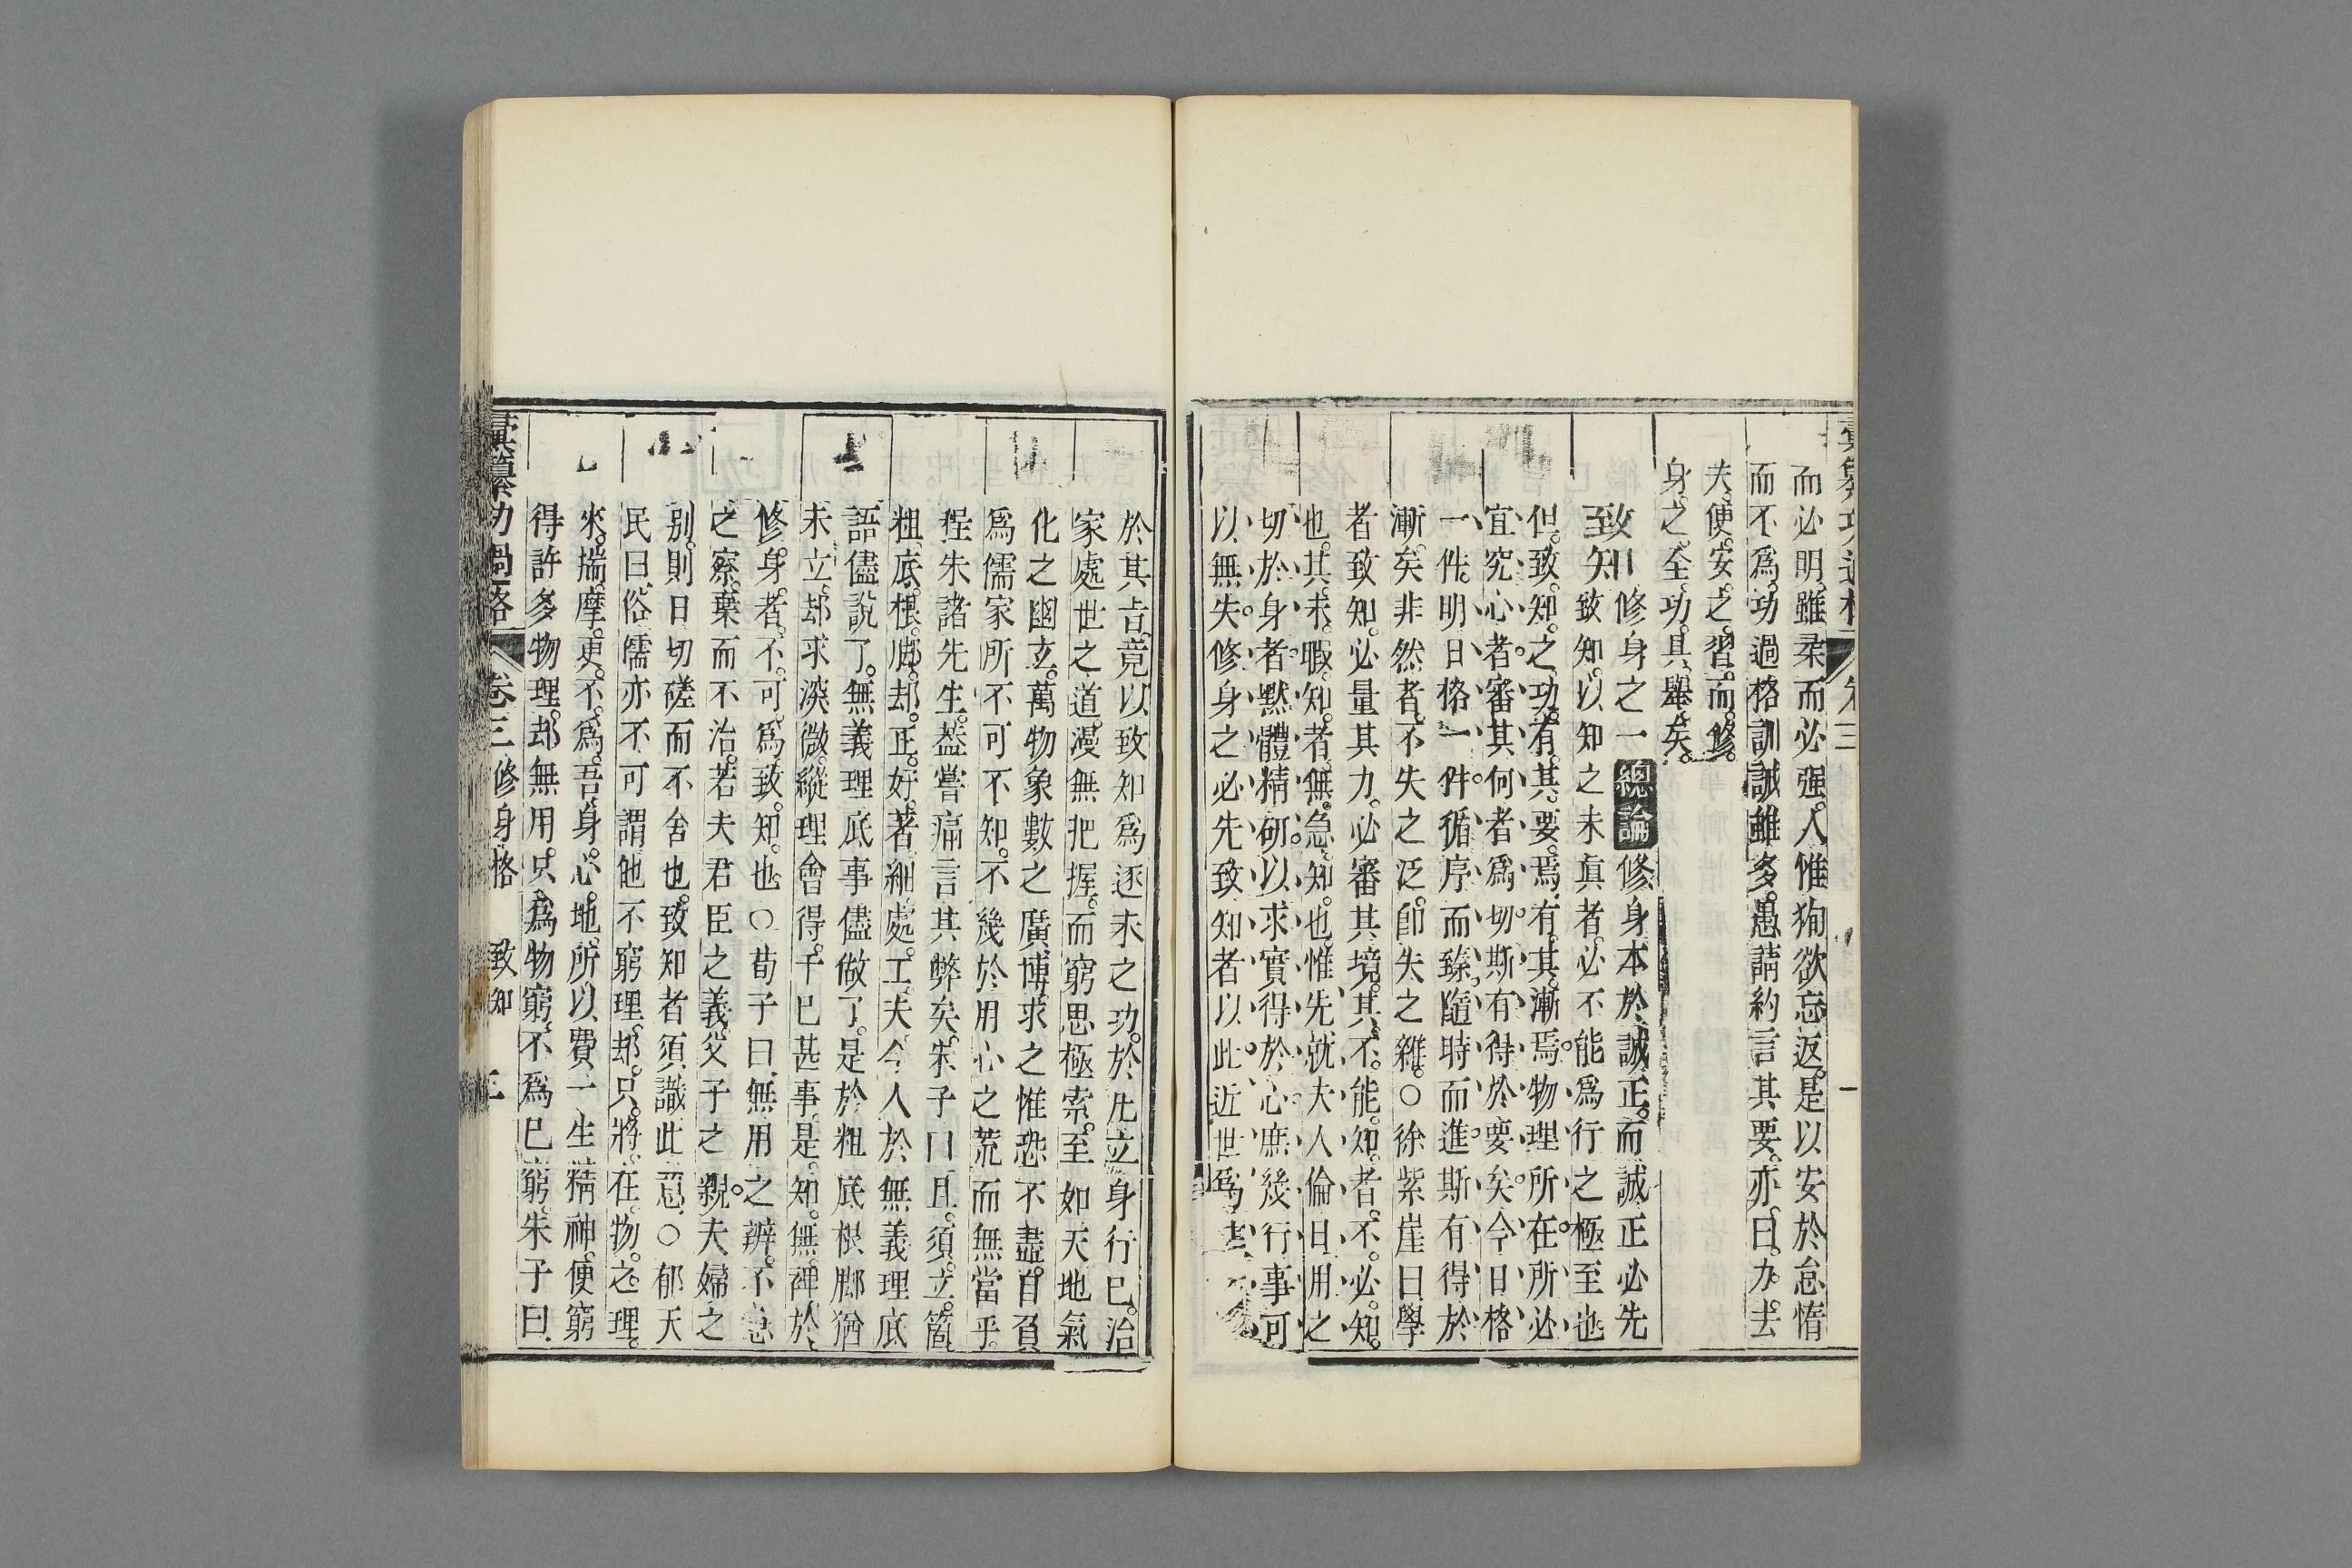 而必明。雖柔而必强。人惟狥欲忘返。是以安於怠惰
而不爲。功過格訓誡雖多。愚請約言其要。亦曰。力去
夫便安之習。而修
身之全功。具舉矣。
致知 修身之一 總論 修身本於誠正。而誠正必先
致知。以知之未眞者。必不能爲行之極至也
但致知之功。有其要焉。有其漸焉。物理所在。所必
宜究心者。審其何者爲切。斯有得於要矣。今日格
一件。明日格一件。循序而臻。隨時而進。斯有得於
漸矣。非然者。不失之泛。卽失之雜。○徐紫崖曰。學
者致知。必量其力。必審其境。其不能知者。不必知。
也。其未暇知者。無急知也。惟先就夫人倫日用之
切於身者。默體精硏。以求實得於心。庶幾行事可
以無失。修身之必先致知者以此。近世爲
於其占。竟以致知爲逐末之功。於凡立身行已。治
家處世之道。漫無把握。而窮思極索。至如天地氣
化之幽玄。萬物象數之廣博。求之惟恐不盡。自負
爲儒家所不可不知。不幾於用心之荒而無當乎。
程朱諸先生。葢嘗痛言其弊矣。朱子曰。且須立箇
粗底根脚。却正好著細處工夫。今人於無義理底
語儘說了。無義理底事儘做了。是於粗底根脚猶
未立。却求深微。縱理會得。干已甚事。是知無裨於
修身者。不可爲致知也。○荀子曰。無用之辨。不急
之察。棄而不治。若夫君臣之義。父子之親。夫婦之
别。則日切磋而不舍也。致知者須識此意。○郁天
民曰。俗儒亦不可謂他不窮理。却只將在物之理。
來揣摩。更不爲吾身心地。所以費一生精神。便窮
得許多物理。却無用。只爲物窮。不爲已窮。朱子曰。
彙纂功過格 卷三 修身格 致知 三